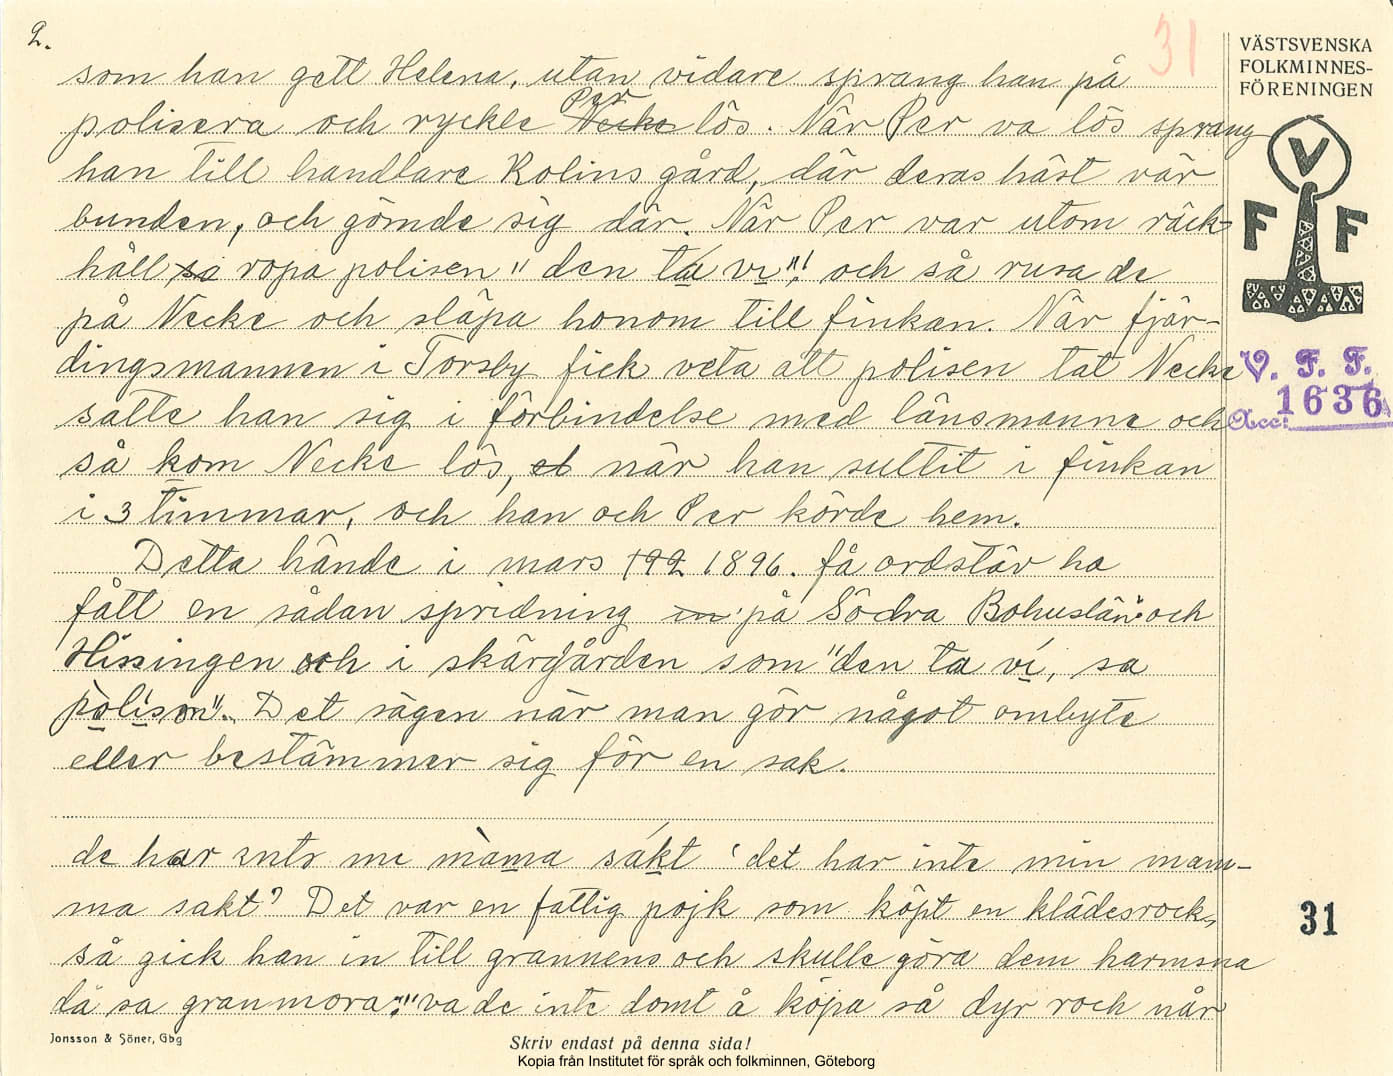 2.
31
VÄSTSVENSKA
FOLKMINNES-
FÖRENINGEN
som han gett Helena, utan vidare sprang han på
Per
polisera och ryckle Necke lös. När Per va lös sprang
han till handlare Rolins gård, där deras häst vär
bunden, och gömde sig där. När Per var utom räck-
håll sa ropa polisen "den ta vi"! och så rusa de
på Necke och släpa honom till finkan. När fjär-
dingsmannen i Torsby fick veta att polisen tat Necke
satte han sig i förbindelse med länsmanne och
så kom Necke lös, et när han suttit i finkan
i 3 timmar, och han och Per körde hem.
Detta hände i mars 192 1896. få ordstäv ha
fått en sådan spridning in på Södra Bohuslän och
Hissingen och i skärgården som "den ta vi, sa
polisen". Det sägen när man gör något ombyte
eller bestämmer sig för en sak.
de har ints mi màma sákt 'det har inte min mam-
ma sakt? Det var en fattig pojk som köpt en klädesrock,
så gick han in till grannens och skulle göra dem harmsna
då sa granmora: "va de inte domt å köpa så dyr rock når
V
F F
V. F. F.
Acc: 1636
31
Jonsson & Söner, Gbg
Skriv endast på denna sida!
Kopia från Institutet för språk och folkminnen, Göteborg